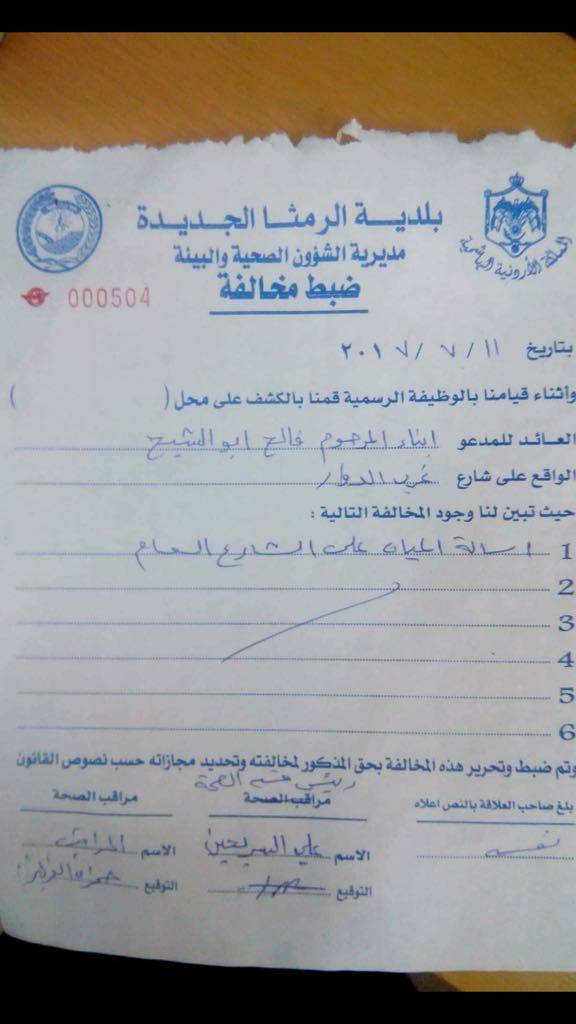 المملكة الأردنية الهاشمية
بلدية الرمثا الجديدة
مديرية الشؤون الصحية والبيئة
ضبط مخالفة
000504
بتاريخ ١١ / ٧ / ٢٠١٧
وأثناء قيامنا بالوظيفة الرسمية قمنا بالكشف على محل ( )
العائد للمدعو ابناء المرحوم فالح ابو الشيح
الواقع على شارع غرب الدوار
حيث تبين لنا وجود المخالفة التالية :
1 اسالة المياه على الشارع العام
2
3
4
5
6
وتم ضبط وتحرير هذه المخالفة بحق المذكور لمخالفته وتحديد مجازاته حسب نصوص القانون
رئيس قسم الصحة
بلغ صاحب العلاقة بالنص اعلاه مراقب الصحة مراقب الصحة
نفسه الاسم علي السريحين الاسم المراقب
التوقيع التوقيع